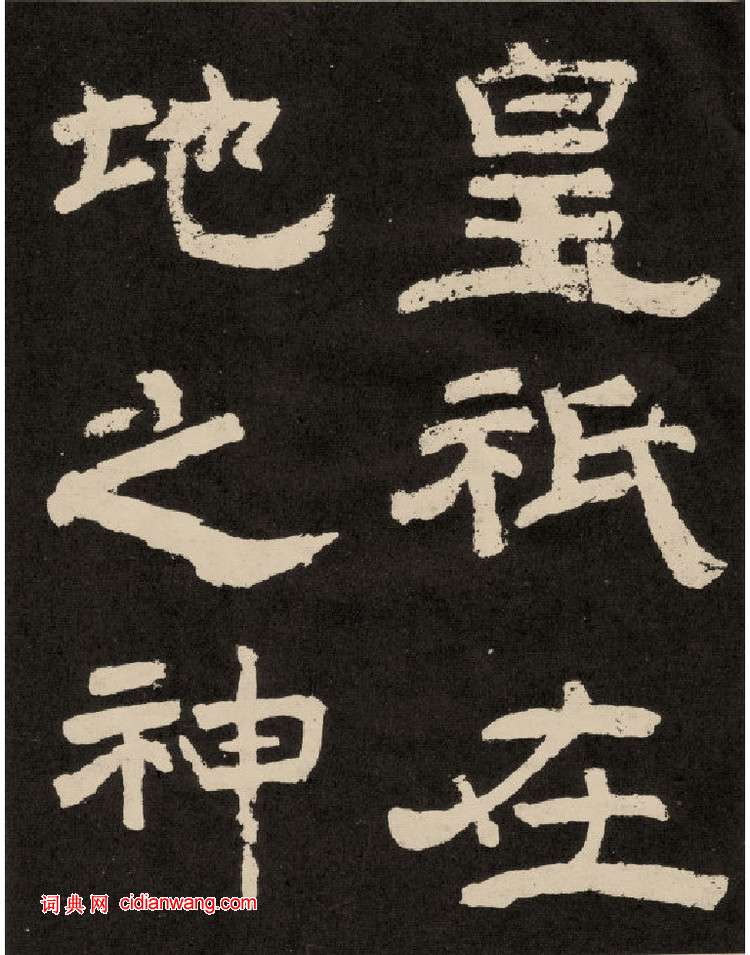 皇祇在
地之神
词典网 cidianwang.com